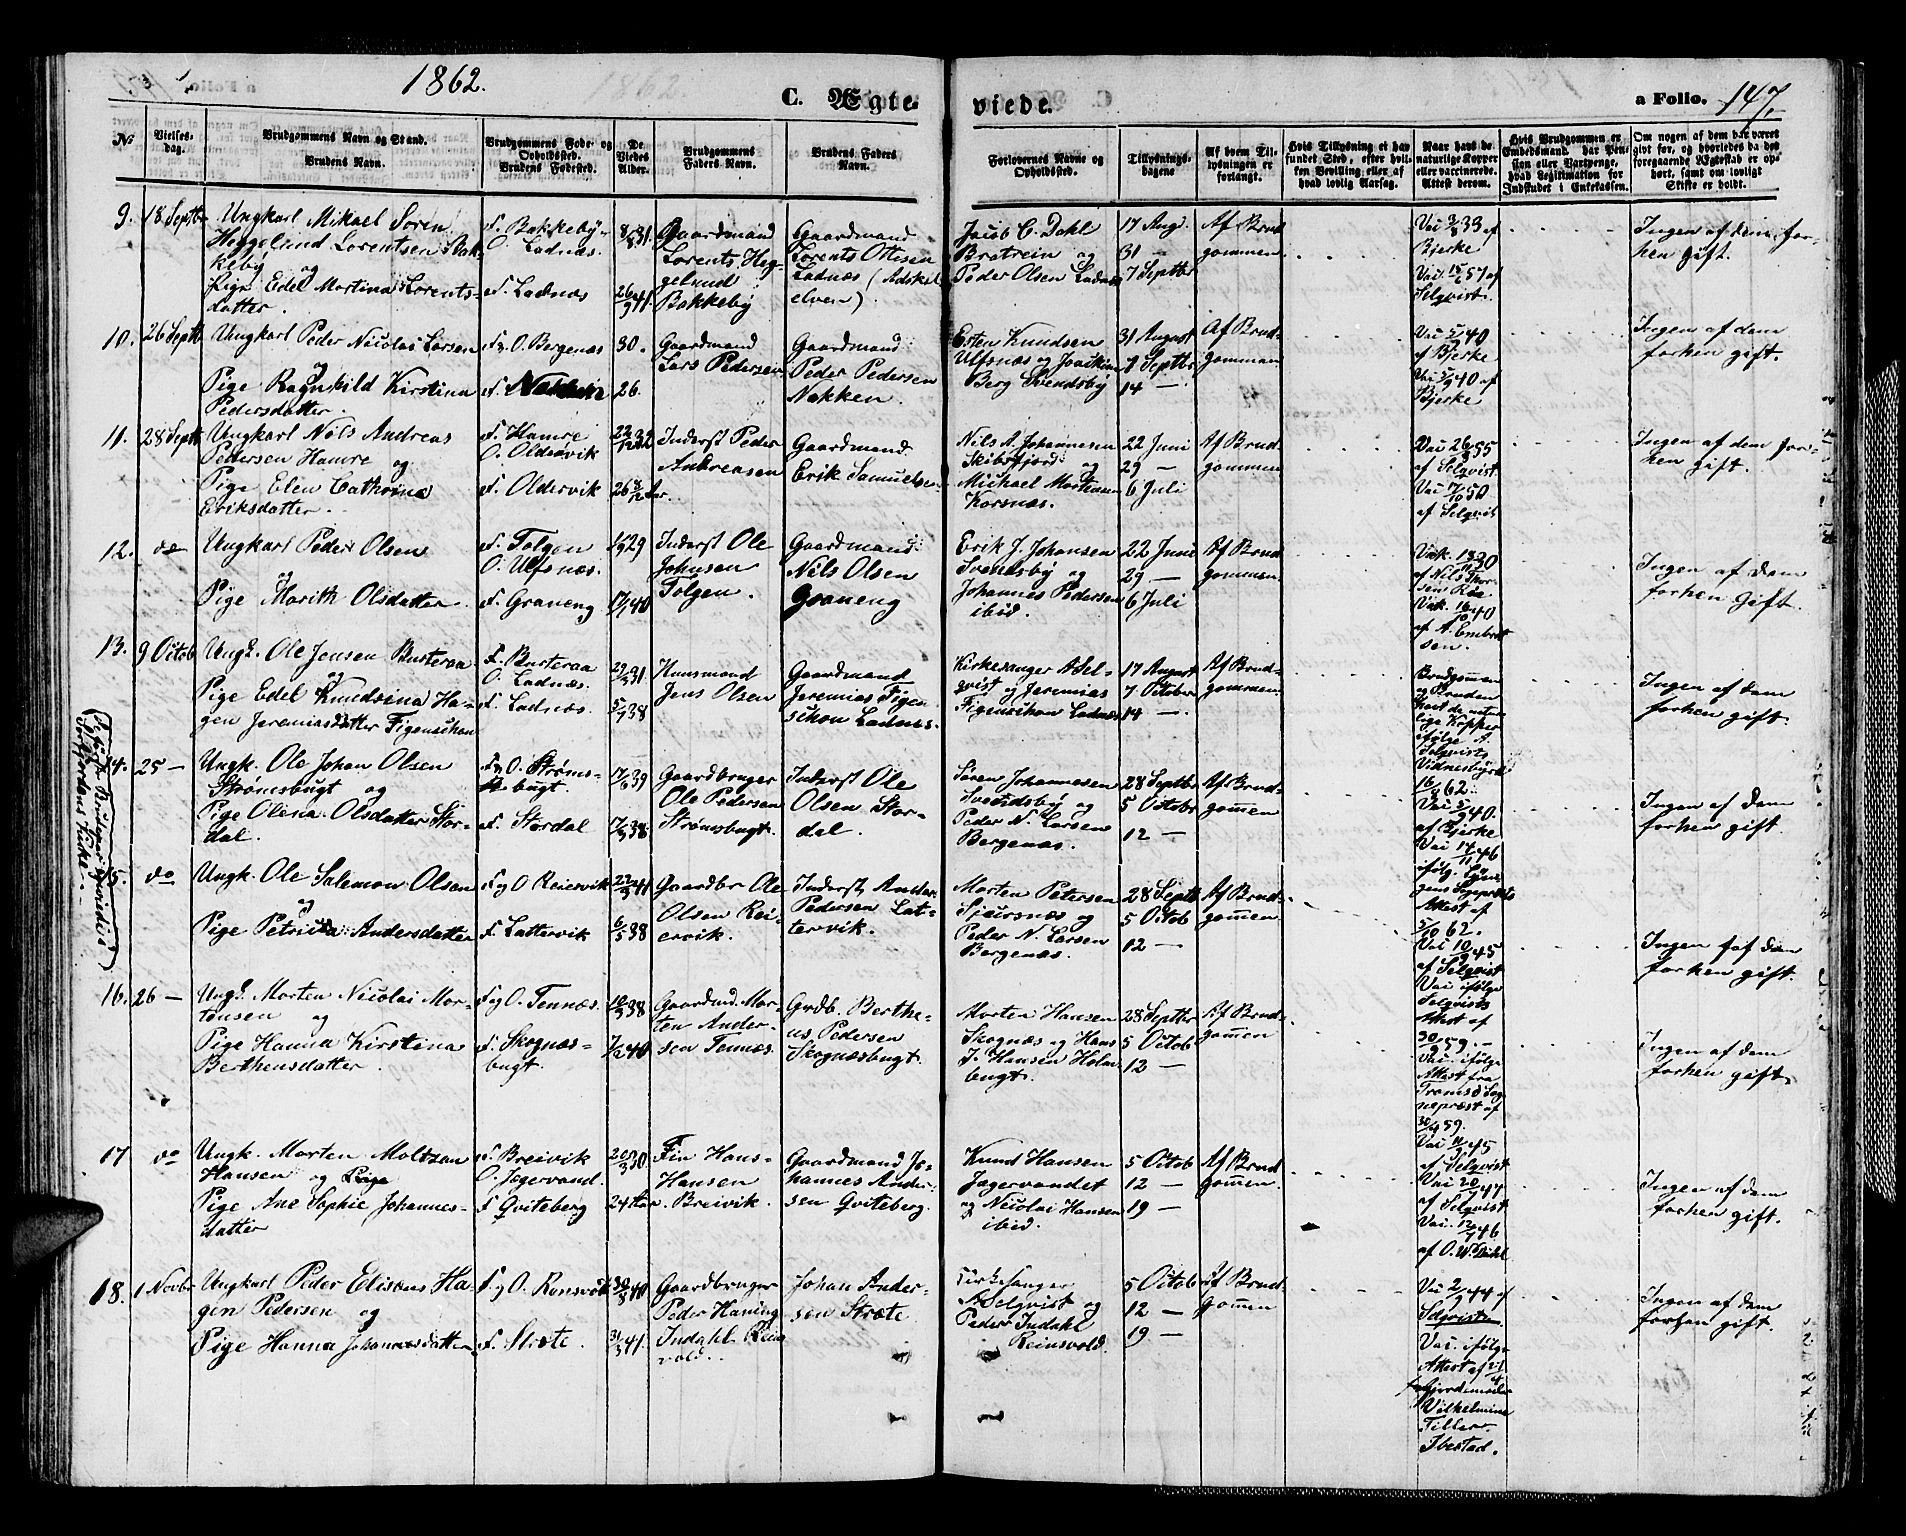 1862.
C. Ægte
viede.
a Folio. 147.
No
Vielses-
dag.
Brudgommens Navn og Stand.
Brudens Navn.
Brudgommens Føde- og
Opholdssted.
Brudens Fødested.
De
Viedes
Alder.
Brudgommens
Faders Navn.
Brudens Faders
Navn.
Forlovernes Navne og
Opholdssted.
Tillysnings-
dagene
Af hvem Til-
lysningen er
forlangt.
Hvis Tillysning ei har
fundet Sted, efter hvil-
ken Bevilling eller af
hvad lovlig Aarsag.
Naar havt de
naturlige Kopper
eller vaccinerede.
Attest derom.
Hvis Brudgommen er
Embedsmand, har Pen-
sion eller Vartpenge,
hvad Legitimation for
Indskudet i Enkekassen.
Om nogen af dem har været
gift før, og hvorledes da det
foregaaende Ægteskab er op-
hørt, samt om lovligt
Skifte er holdt.
9. 18 Septbr
Ungkarl Mikael Søren
Heggelund Lorentsen Bak-
keby og
Pige Edel Martina Lorents-
datter.
F. Bakkeby
O. Ladnæs.
F. Ladnæs
8/8 31
26/9 41.
Gaardmand
Lorents Heg-
gelund
Bakkeby
Gaardmand
Lorents Ottesen
Ladnæs
elven).
Jacob C. Dahl
Bratrein og
Peder Olsen Ladnæs
17 Aug.
31 —
7 Septbr
Af Brud-
gommen
af
Bjerke
57 af
Selqvist.
Ingen af dem for-
hen gift.
10. 26 Septb
Ungkarl Peder Nicolai Larsen
og
Pige Ragnhild Kirstina
Pedersdatter.
F. og O. Bergenæs
F. Nakken
30.
26.
Gaardmand
Lars Pedersen
Gaardmand
Peder Pedersen
Nakken.
Esten Knudsen
Ulfsnæs og Joakim
Berg Svendsby
31 August
7 Septbr
14 —
Af Brud-
gommen
40
af Bjerke
40 af
Bjerke
Ingen af dem
forhen gift.
11. 28 Septb
Ungkarl Nils Andreas
Pedersen Hamre
og
Pige Elen Cathrina
Eriksdatter.
F. Hamre
O. Oldervik
F. Oldervik
22/12 32
26 8/12 Aar.
Inderst Peder
Andreasen
Gaardmand
Erik Samuelsen
Nils A. Johannesen
Skibsfjord og
Michael Mortensen
Korsnæs.
22 Juni
29 —
6 Juli
Af Brud-
gommen
55
af Selqvist.
50
af Selqvist
Ingen af dem for-
hen gift.
12. do
Ungkarl Peder Olsen
og
Pige Marith Olsdatter.
F. Tolgen
O. Ulfsnæs.
F. Graneng
29
17/1 40
Inderst Ole
Johnsen
Tolgen.
Gaardmand
Nils Olsen
Graneng
Erik J. Johansen
Svendsby og
Johannes Pedersen
ibid.
22 Juni
29. —
6 Juli
Af Brud-
gommen.
30
af Nils Thor-
sen Røe
40
af A. Embret-
sen.
Ingen af dem
forhen gift.
13. 9 Octob
Ungk. Ole Jensen Busteraa
og
Pige Edel Knudsina Ha-
gen Jeremiasdatter Figenschau
F. Busteraa
O. Ladnæs.
F. Ladnæs.
31
38
Huusmand
Jens Olsen
Gaardmand
Jeremias Figen-
schou Ladnæs.
Kirkesanger A. Sel-
qvist og Jeremias
Figenschou Ladnæs
17 August
7 October
14 —
Af Brud-
gommen.
Brudgommen
og Bruden
havt de natur-
lige Kopper
ifølge A.
Selqvists
Vidnesbyrd
16/8 62.
Ingen af dem
forhen gift.
14. 25 —
Ungk. Ole Johan Olsen
Strømsbugt og
Pige Olina Olsdatter Stor-
dal.
F. og O. Strøms-
bugt.
F. Stordal
39
38
Gaardbruger
Ole Pedersen
Strømsbugt.
Inderst Ole
Olsen Stor-
dal.
Søren Johannesen
Svendsby og
Peder N. Larsen
Bergenæs.
28 Septbr
5 Octobr
12 —
Af Brud-
gommen.
40.
af Bjerke
46
ifølg. Lyn-
gens Sognepræsts
Attest af
5/10 62.
Ingen af dem
forhen gift.
15. do
Ungk. Ole Salemon Olsen
og
Pige Petricka Andersdatter
F. og O. Reiervik
F. Lattervik
41
6/5 38
Gaardbr Ole
Olsen Rei-
ervik.
Inderst Anders
Pedersen Lat-
tervik.
Morten Petersen
Sjursnæs og
Peder N. Larsen
Bergenæs.
28 Septb
5 Octob
12 —
Af Brud-
gommen.
45
af Selqvist
Vac. ifølge
Selqvists
Attest af
59. —
Ingen af dem
forhen gift.
16. 26 —
Ungk. Morten Nicolai Mor-
tensen og
Pige Hanna Kirstina
Berthensdatter.
F. og O. Tennæs.
F. Skognæs-
bugt.
38
40
Gaardmd. Mor-
ten Ander-
sen Tennæs.
Grdb. Berthe-
us Pedersen
Skognæsbugt.
Morten Hansen
Skognæs og Hans
J. Hansen Holm-
bugt.
28 Septbr
5 Octob
12 —
Af Brud-
gommen
Vac. ifølge
Attest fra
Tromsø Sog-
nepræst af
59.
Ingen af dem
forhen gift.
17 do
Ungk. Morten Moltzau
Hansen og
Pige Ane Sophie Johannes-
datter
F. Breivik
O. Jægervand.
F. Qviteberg
20/3 30
24 Aar.
Fin Hans
Hansen
Breivik.
Gaardmand Jo-
hannes Ander-
sen Qviteberg.
Knud Hansen
Jægervandet
og Nicolai Hansen
ibid.
5 Octob
12 —
19 —
Af Brud-
gommen.
45
af Selqvist
47
af Selqvist
Vac. 46
Ingen af dem
forhen gift.
18. 1 Novbr
Ungkarl Peder Elisæus Ha-
gen Pedersen og
Pige Hanna Johannesdatter
F. og O. Rensvold
F. Stræte.
40
31/3 41.
Gaardbruger
Peder Haning
Indahl Rens-
vold.
Johan Ander-
sen Stræte.
Kirkesanger
A. Selqvist og
Peder Indahl
Reinsvold.
5 Octob
12 —
19 —
Af Brud-
gommen
44 af
Selqvist
Vac. ifølge
Attest af
Gjordemoder
Vilhelmine
Tiller
Ibestad.
Ingen af dem
forhen gift.